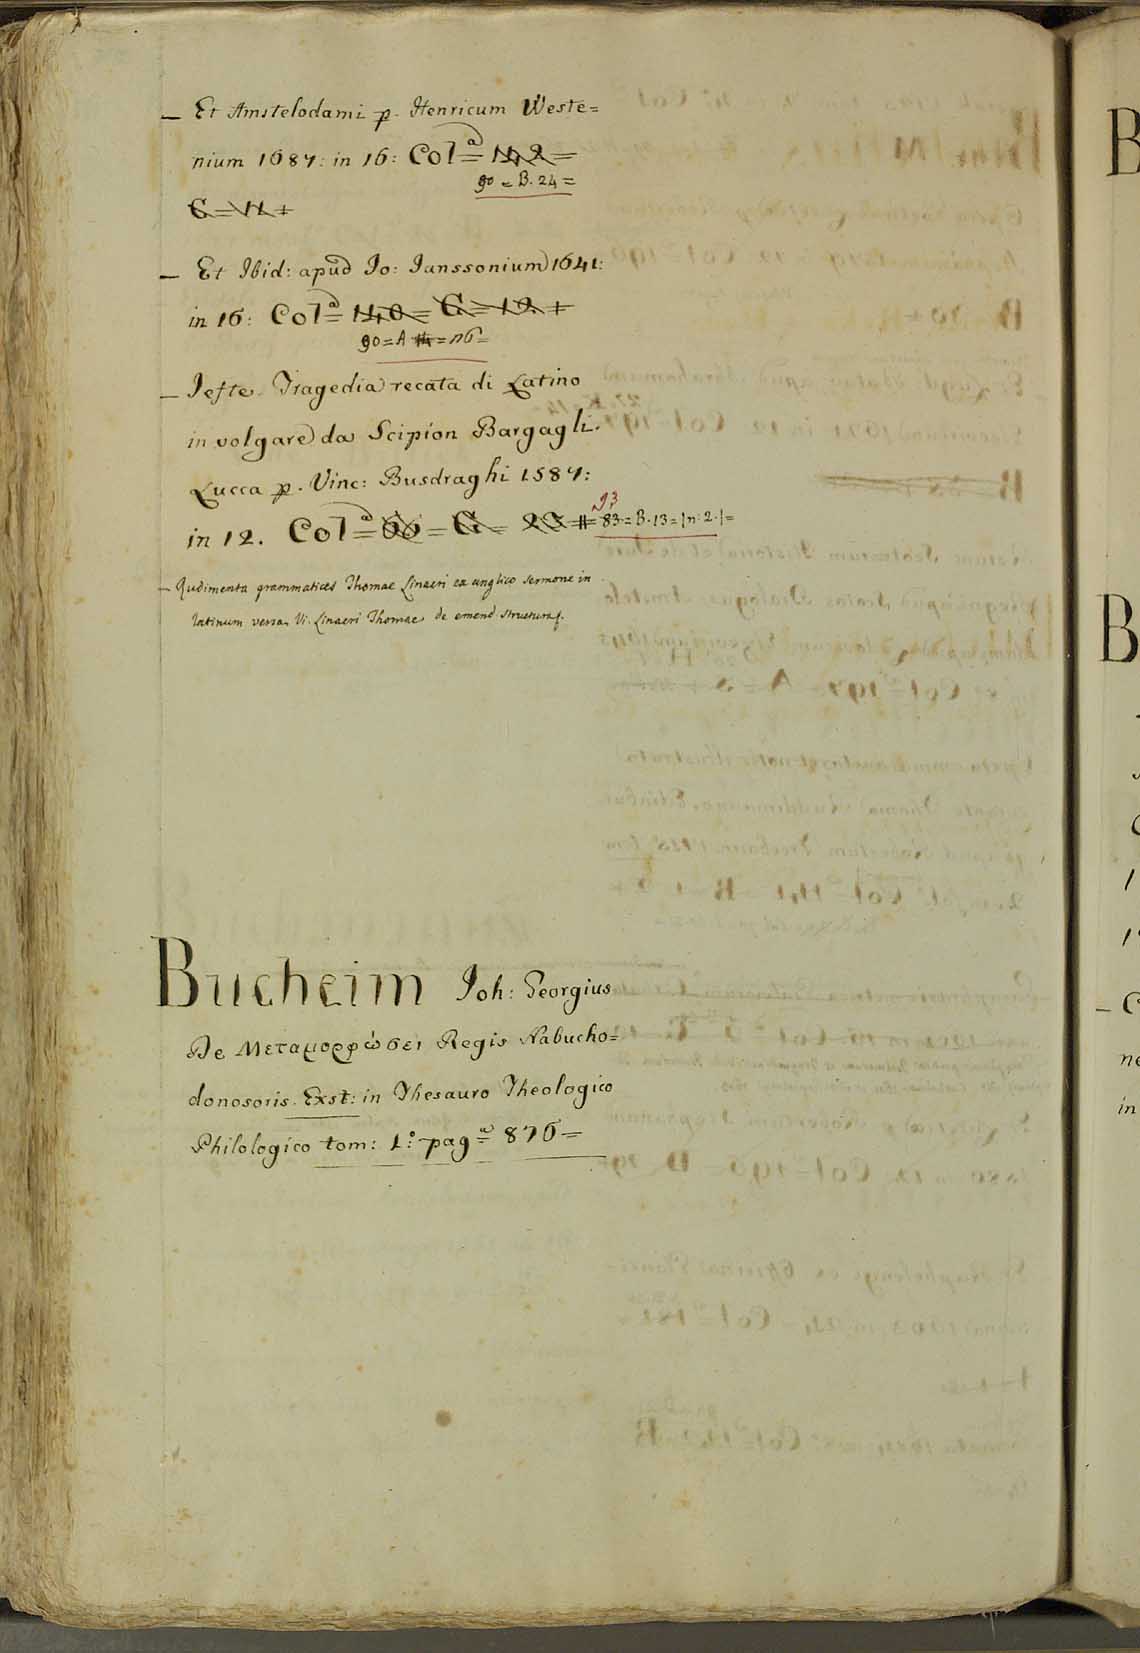 — Et Amstelodami p. Henricum Weste=
nium 1687: in 16: Colª= 142 =
90 = B. 24 =
G = 11 +
— Et Ibid: apud Jo: Janssonium 1641:
in 16: Colª= 140 = G = 19 +
90 = A = 16 =
— Jefte. Tragedia recata di Latino
in volgare da Scipion Bargagli.
Lucca p. Vinc: Busdraghi 1587:
93
in 12. Colª= 66 = G = 23 + = 83 = B. 13 = |n. 2.| =
— Rudimenta grammatices Thomae Linacri ex anglico sermone in
latinum versa. Vi. Linacri Thomae de emend. structura
Bucheim Joh: Georgius
De Μεταμορφώσει Regis Nabucho=
donosoris. Exst: in Thesauro Theologico
Philologico tom: 1.º pagª= 876 =
B
B